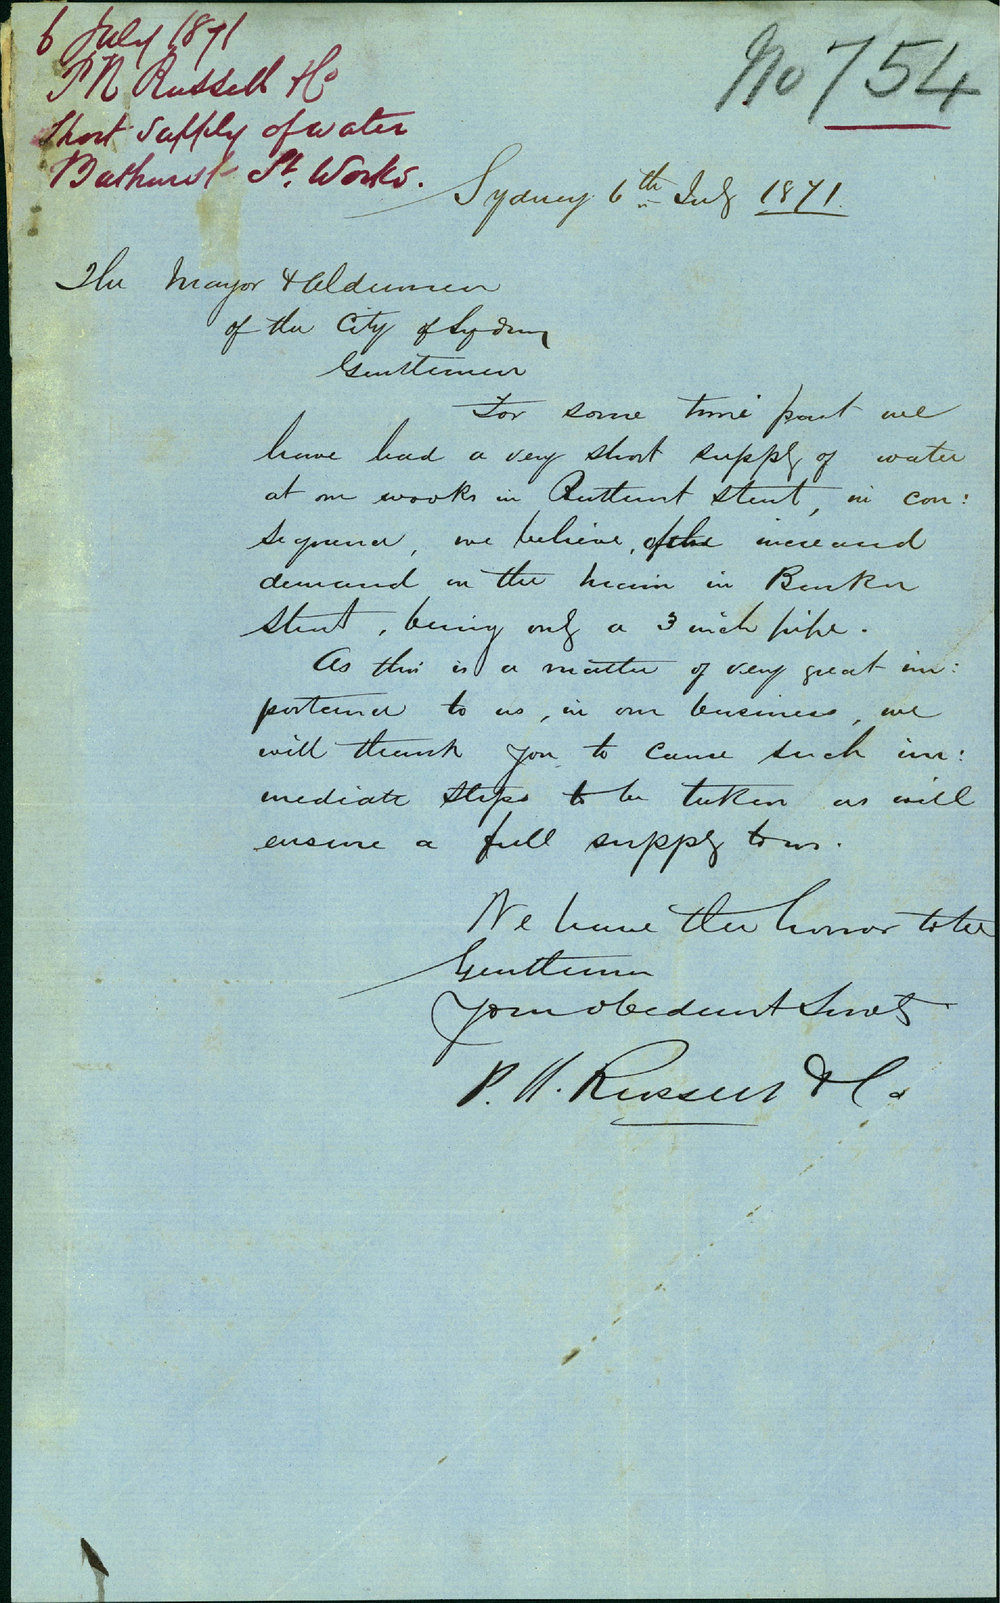 6 July 1871
P N Russell & Co
Short supply of water
Bathurst St. Works.
No 754
Sydney 6th July 1871.
The Mayor & Aldermen
of the City of Sydney
Gentlemen
For some time past we
have had a very short supply of water
at our works in Bathurst Street, in con:
sequence, we believe, of the increased
demand on the main in Barker
Street, being only a 3 inch pipe.
As this is a matter of very great im:
portance to us, in our business, we
will thank you to cause such im:
mediate steps to be taken as will
ensure a full supply to us.
We have the honor to be
Gentlemen
Your obedient Servts
P. N. Russell & Co